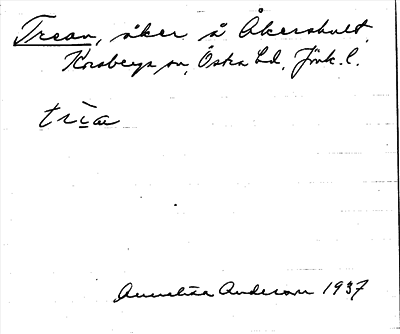 Trean, åker å Åkershult,
Korsberga sn, Östra hd, Jönk. l.
trìa
Annelisa Anderson 1937